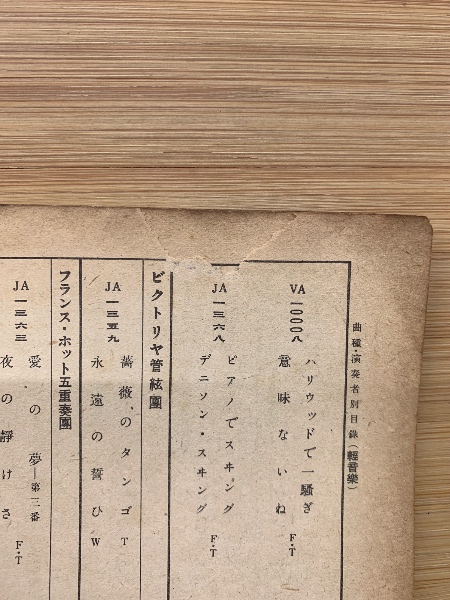 曲種・演奏者別目錄（輕音樂）
VA一〇〇〇八
ハリウッドで一騷ぎ
意味ないね F・T
JA一三六八
ピアノでスヰング
デニソン・スヰング F・T
ビクトリヤ管絃團
JA一三五九
薔薇のタンゴ T
永遠の誓ひ W
フランス・ホット五重奏團
JA一三六三
愛の夢—第三番
夜の靜けさ F・T